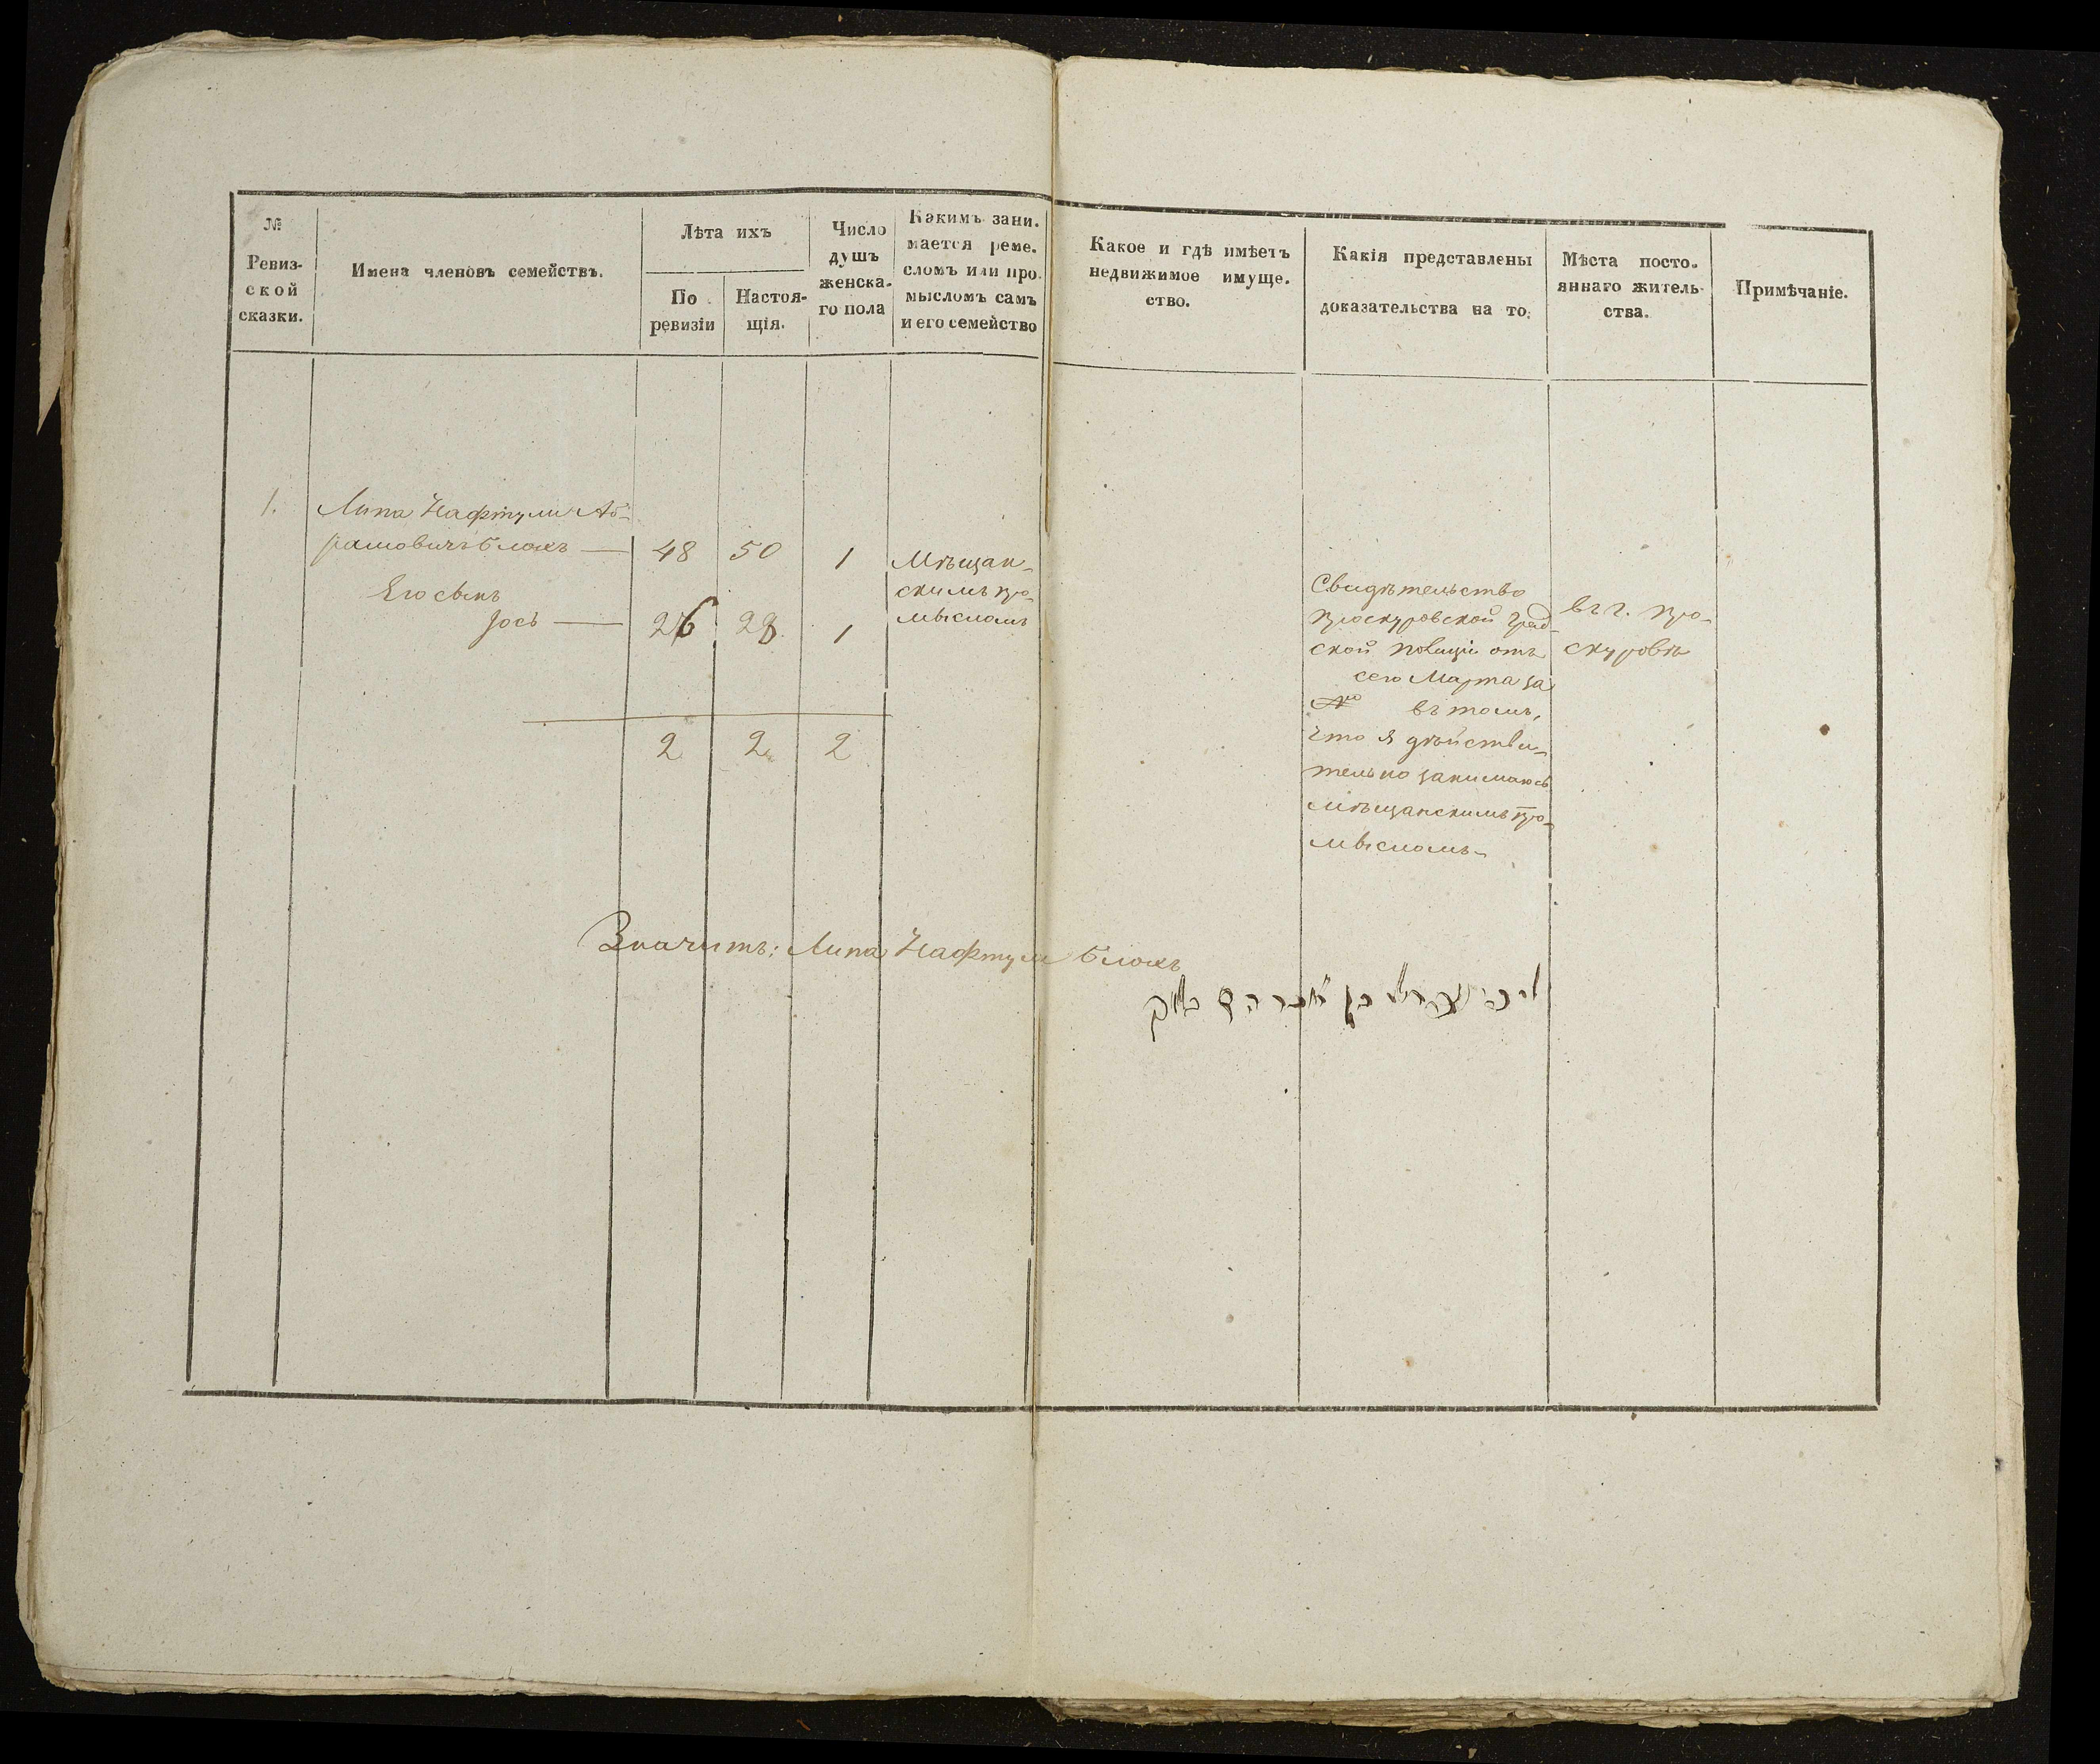 №
Ревиз-
ской
сказки.
Имена членовъ семействъ.
Лѣта ихъ
По
ревизіи
Настоя-
щія.
Число
душъ
женска-
го пола
Какимъ зани-
мается реме-
сломъ или про-
мысломъ самъ
и его семейство
Какое и гдѣ имѣетъ
недвижимое имуще-
ство.
Какія представлены
доказательства на то.
Мѣста посто-
яннаго житель-
ства.
Примѣчаніе.
1.
Липа Нафтули Аб-
рамовичъ Блокъ —
48
50
1
Его сынъ
Іось —
26
28
1
2
2
2
Мѣщан-
скимъ про-
мысломъ
Свидѣтельство
Проскуровской град-
ской Полиціи отъ
сего Марта за
№ въ томъ,
что я дѣйстви-
тельно занимаюсь
мѣщанскимъ про-
мысломъ-
въ г. Про-
скуровѣ
Значитъ: Липа Нафтули Блокъ
בן אברהם בלאק